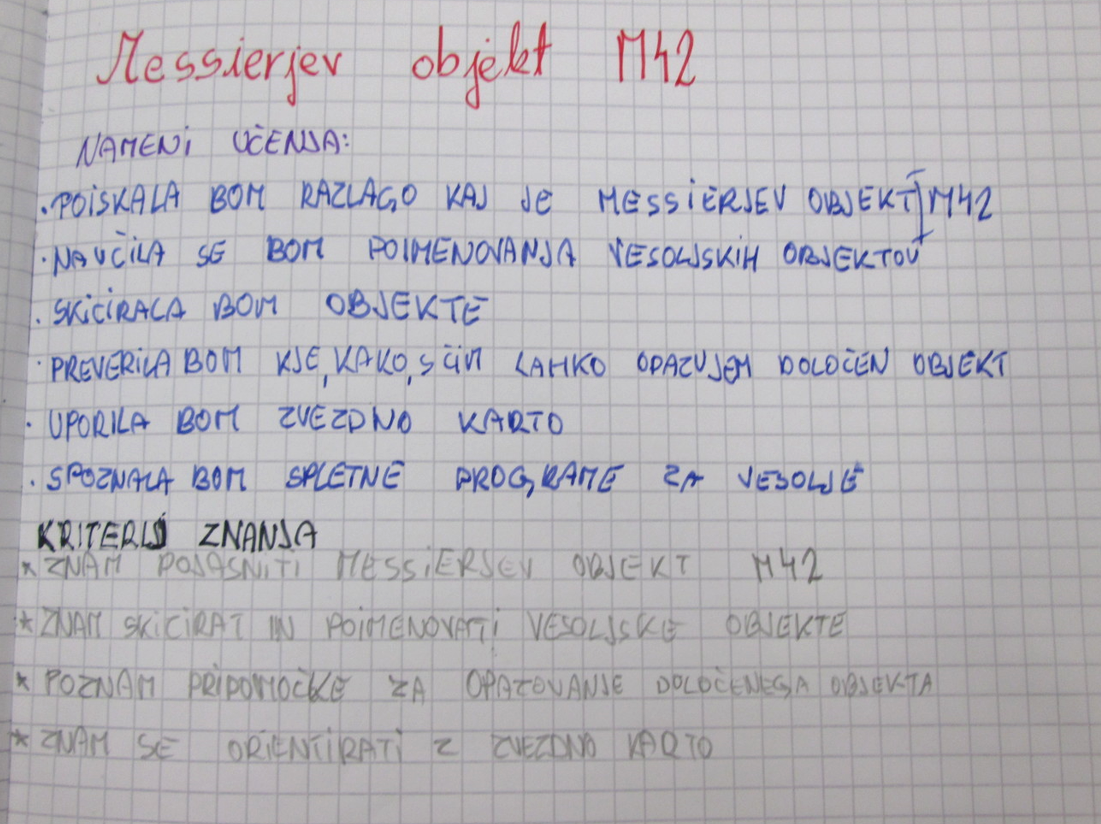 Messierjev objekt M42
NAMENI UČENJA:
· POISKALA BOM RAZLAGO KAJ JE MESSIERJEV OBJEKT M42
· NAUČILA SE BOM POIMENOVANJA VESOLJSKIH OBJEKTOV
· SKICIRALA BOM OBJEKTE
· PREVERILA BOM KJE, KAKO, S ČIM LAHKO OPAZUJEM DOLOČEN OBJEKT
· UPORILA BOM ZVEZDNO KARTO
· SPOZNALA BOM SPLETNE PROGRAME ZA VESOLJE
KRITERIJ ZNANJA
* ZNAM POJASNITI MESSIERJEV OBJEKT M42
* ZNAM SKICIRAT IN POIMENOVATI VESOLJSKE OBJEKTE
* POZNAM PRIPOMOČKE ZA OPAZOVANJE DOLOČENEGA OBJEKTA
* ZNAM SE ORIENTIRATI Z ZVEZDNO KARTO